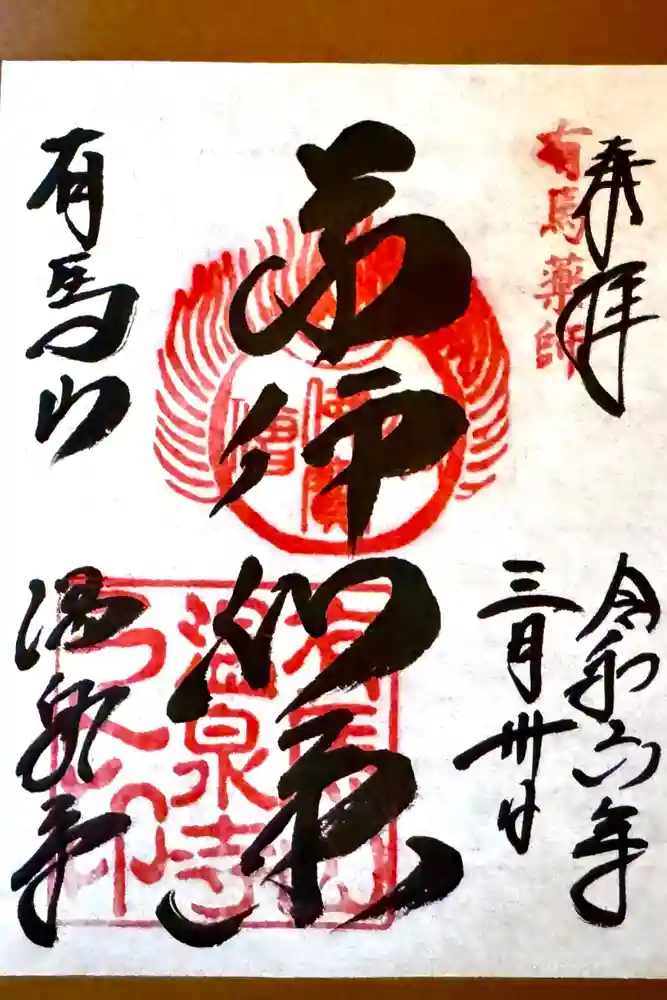 奉拝
有馬薬師
令和六年
三月卅日
薬師如来
有馬山
温泉寺
有馬山
温泉寺